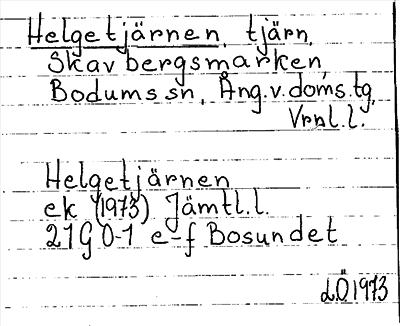 Helgetjärnen, tjärn,
Skavbergsmarken,
Bodums sn, Ång.v.doms.tg,
Vrnl.l.
Helgetjärnen
ek (1973) Jämtl.l.
21G 0-1 e-f Bosundet
LÖ 1973